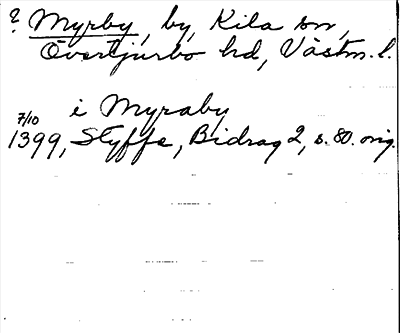 ? Myrby, by, Kila sn,
Övertjurbo hd, Västm. l.
i Myraby
7/10
1399, Styffe, Bidrag 2, s. 80. orig.